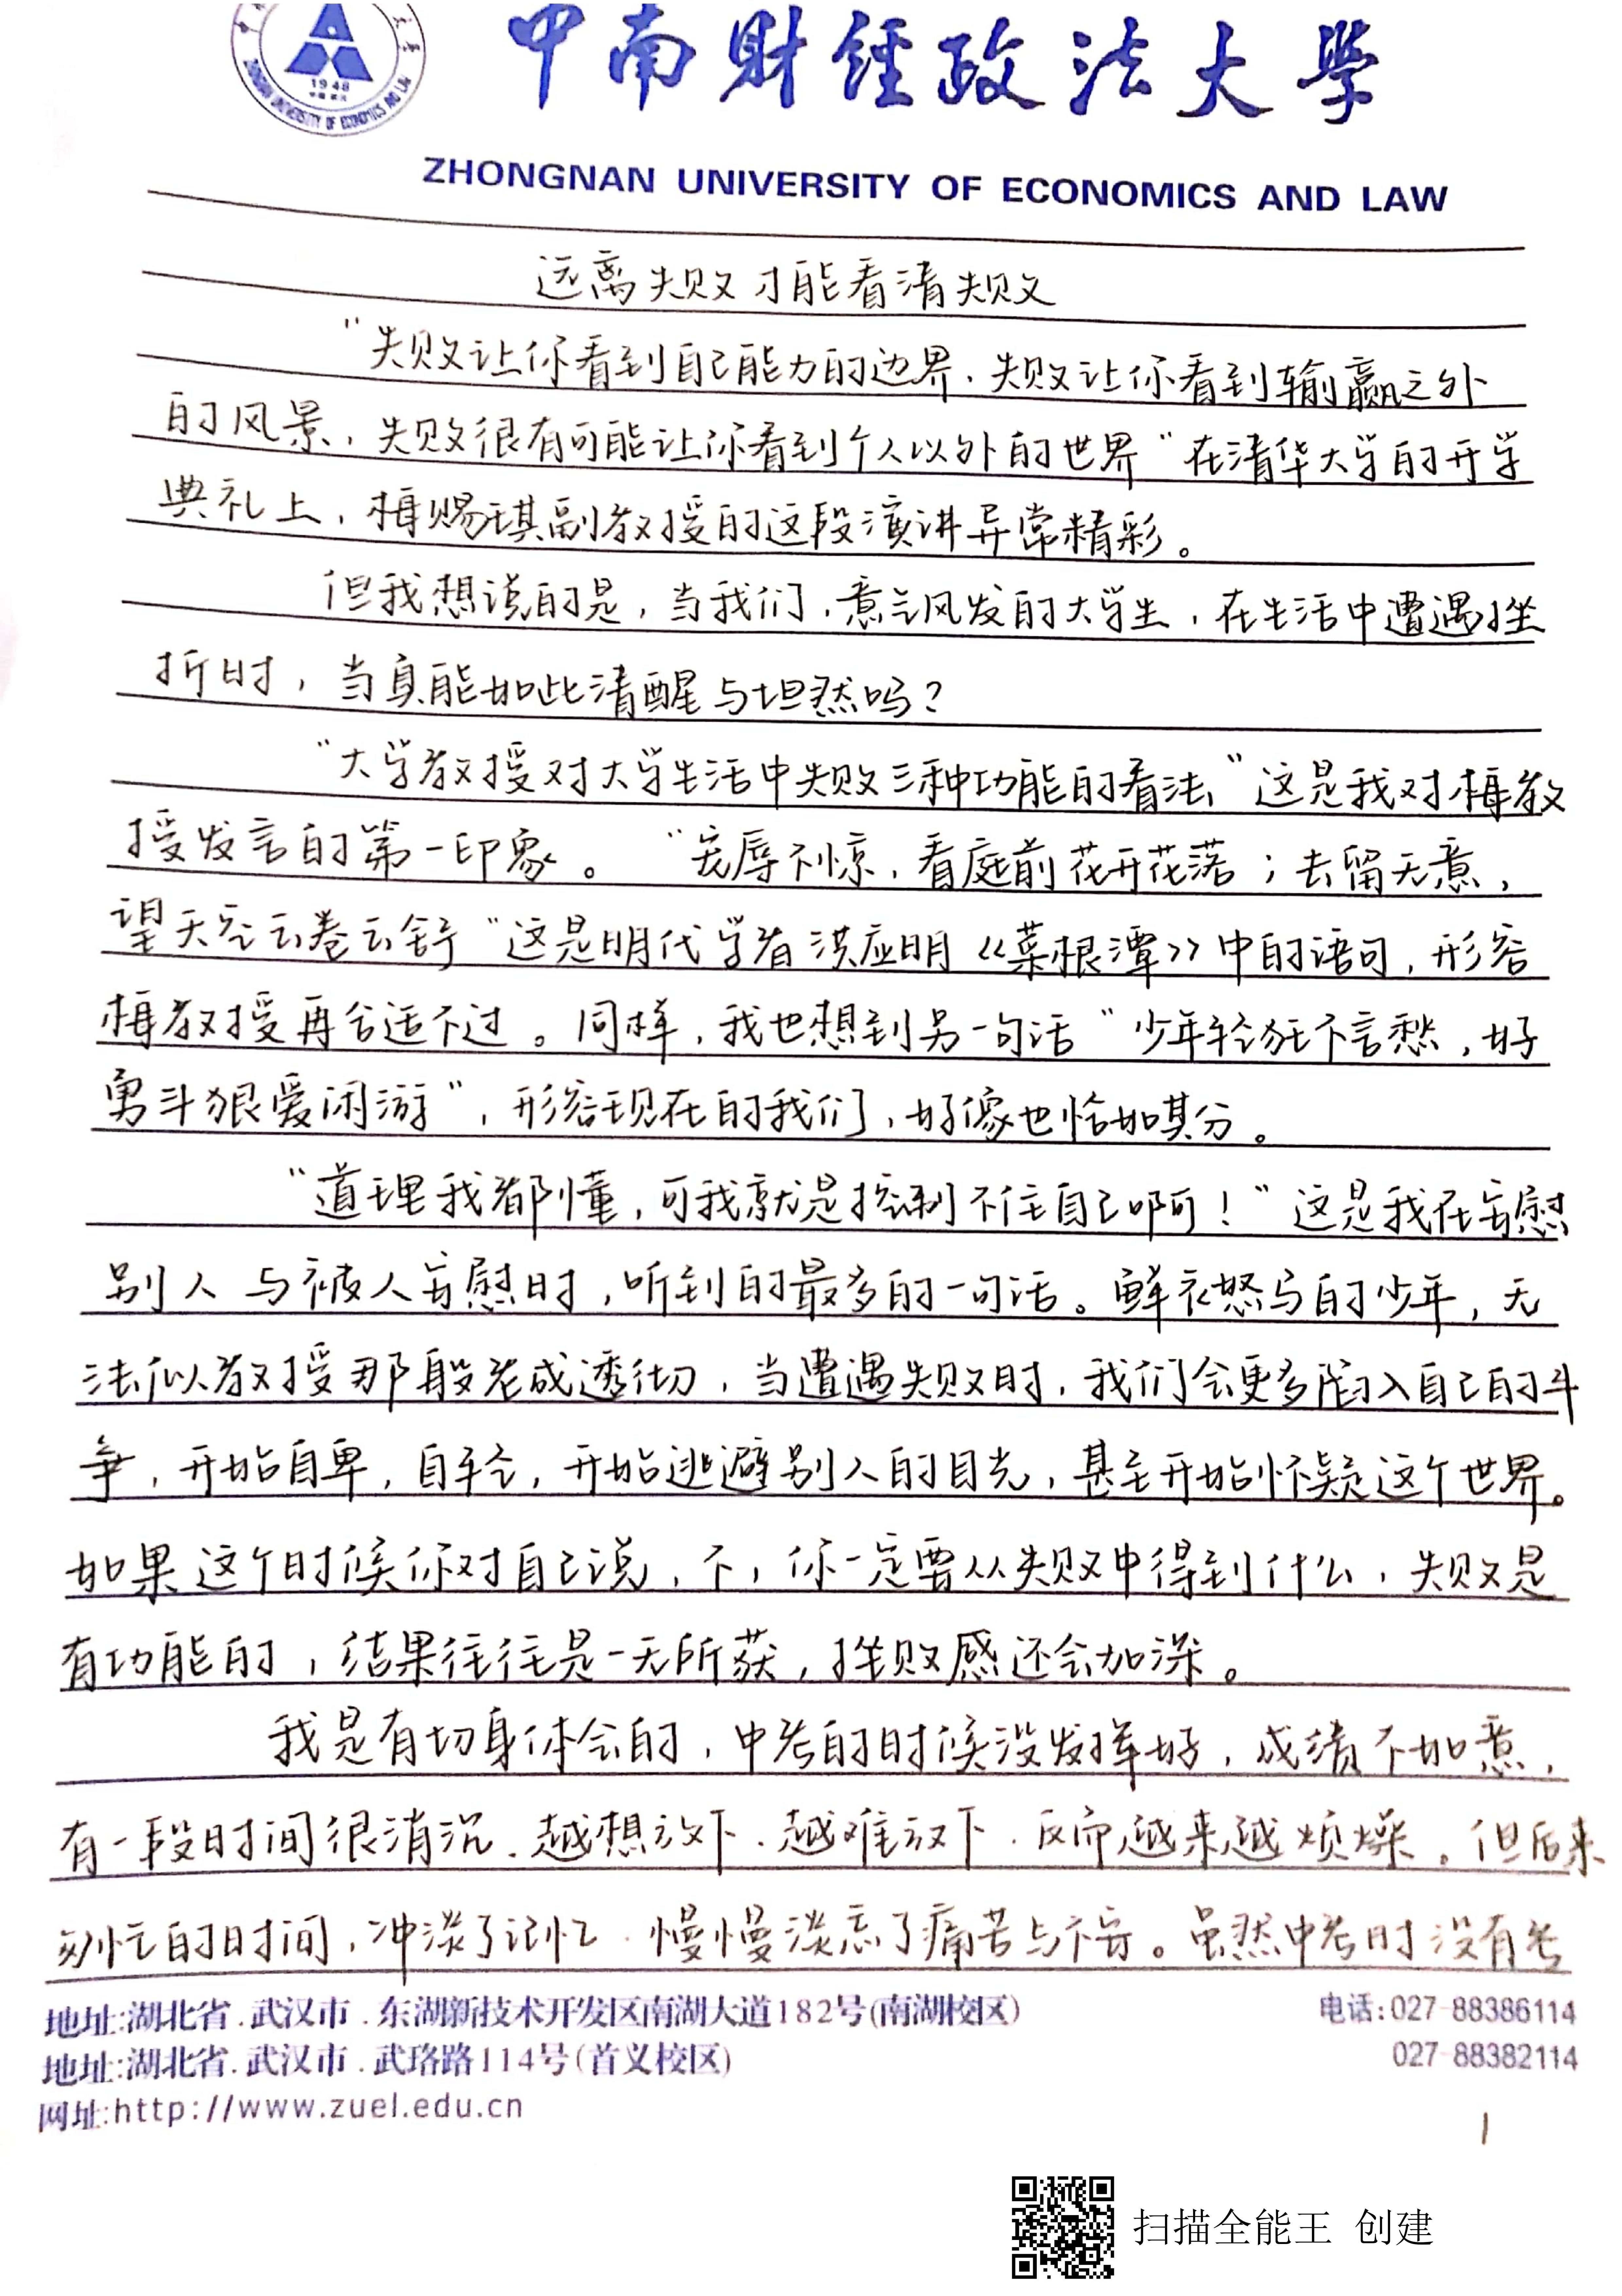 1948
ZHONGNAN UNIVERSITY OF ECONOMICS AND LAW
中南财经政法大学
ZHONGNAN UNIVERSITY OF ECONOMICS AND LAW
远离失败才能看清失败
“失败让你看到自己能力的边界，失败让你看到输赢之外
的风景，失败很有可能让你看到个人以外的世界”在清华大学的开学
典礼上，梅赐琪副教授的这段演讲异常精彩。
但我想说的是，当我们，意气风发的大学生，在生活中遭遇挫
折时，当真能如此清醒与坦然吗？
“大学教授对大学生活中失败三种功能的看法，”这是我对梅教
授发言的第一印象。“宠辱不惊，看庭前花开花落；去留无意，
望天空云卷云舒”这是明代学者洪应明《菜根潭》中的语句，形容
梅教授再合适不过。同样，我也想到另一句话“少年轻狂不言愁，好
勇斗狠爱闲游”，形容现在的我们，好像也恰如其分。
“道理我都懂，可我就是控制不住自己啊！”这是我在安慰
别人与被人安慰时，听到的最多的一句话。鲜衣怒马的少年，无
法似教授那般老成透彻，当遭遇失败时，我们会更多陷入自己的斗
争，开始自卑，自轻，开始逃避别人的目光，甚至开始怀疑这个世界。
如果这个时候你对自己说，不，你一定要从失败中得到什么，失败是
有功能的，结果往往是一无所获，挫败感还会加深。
我是有切身体会的，中考的时候没发挥好，成绩不如意，
有一段时间很消沉．越想放下．越难放下．反而越来越烦燥。但后来
匆忙的时间，冲淡了记忆．慢慢淡忘了痛苦与不安。虽然中考时没有考
地址:湖北省.武汉市.东湖新技术开发区南湖大道182号(南湖校区)
电话:027-88386114
地址:湖北省.武汉市.武珞路114号(首义校区)
027-88382114
网址:http://www.zuel.edu.cn
1
扫描全能王 创建